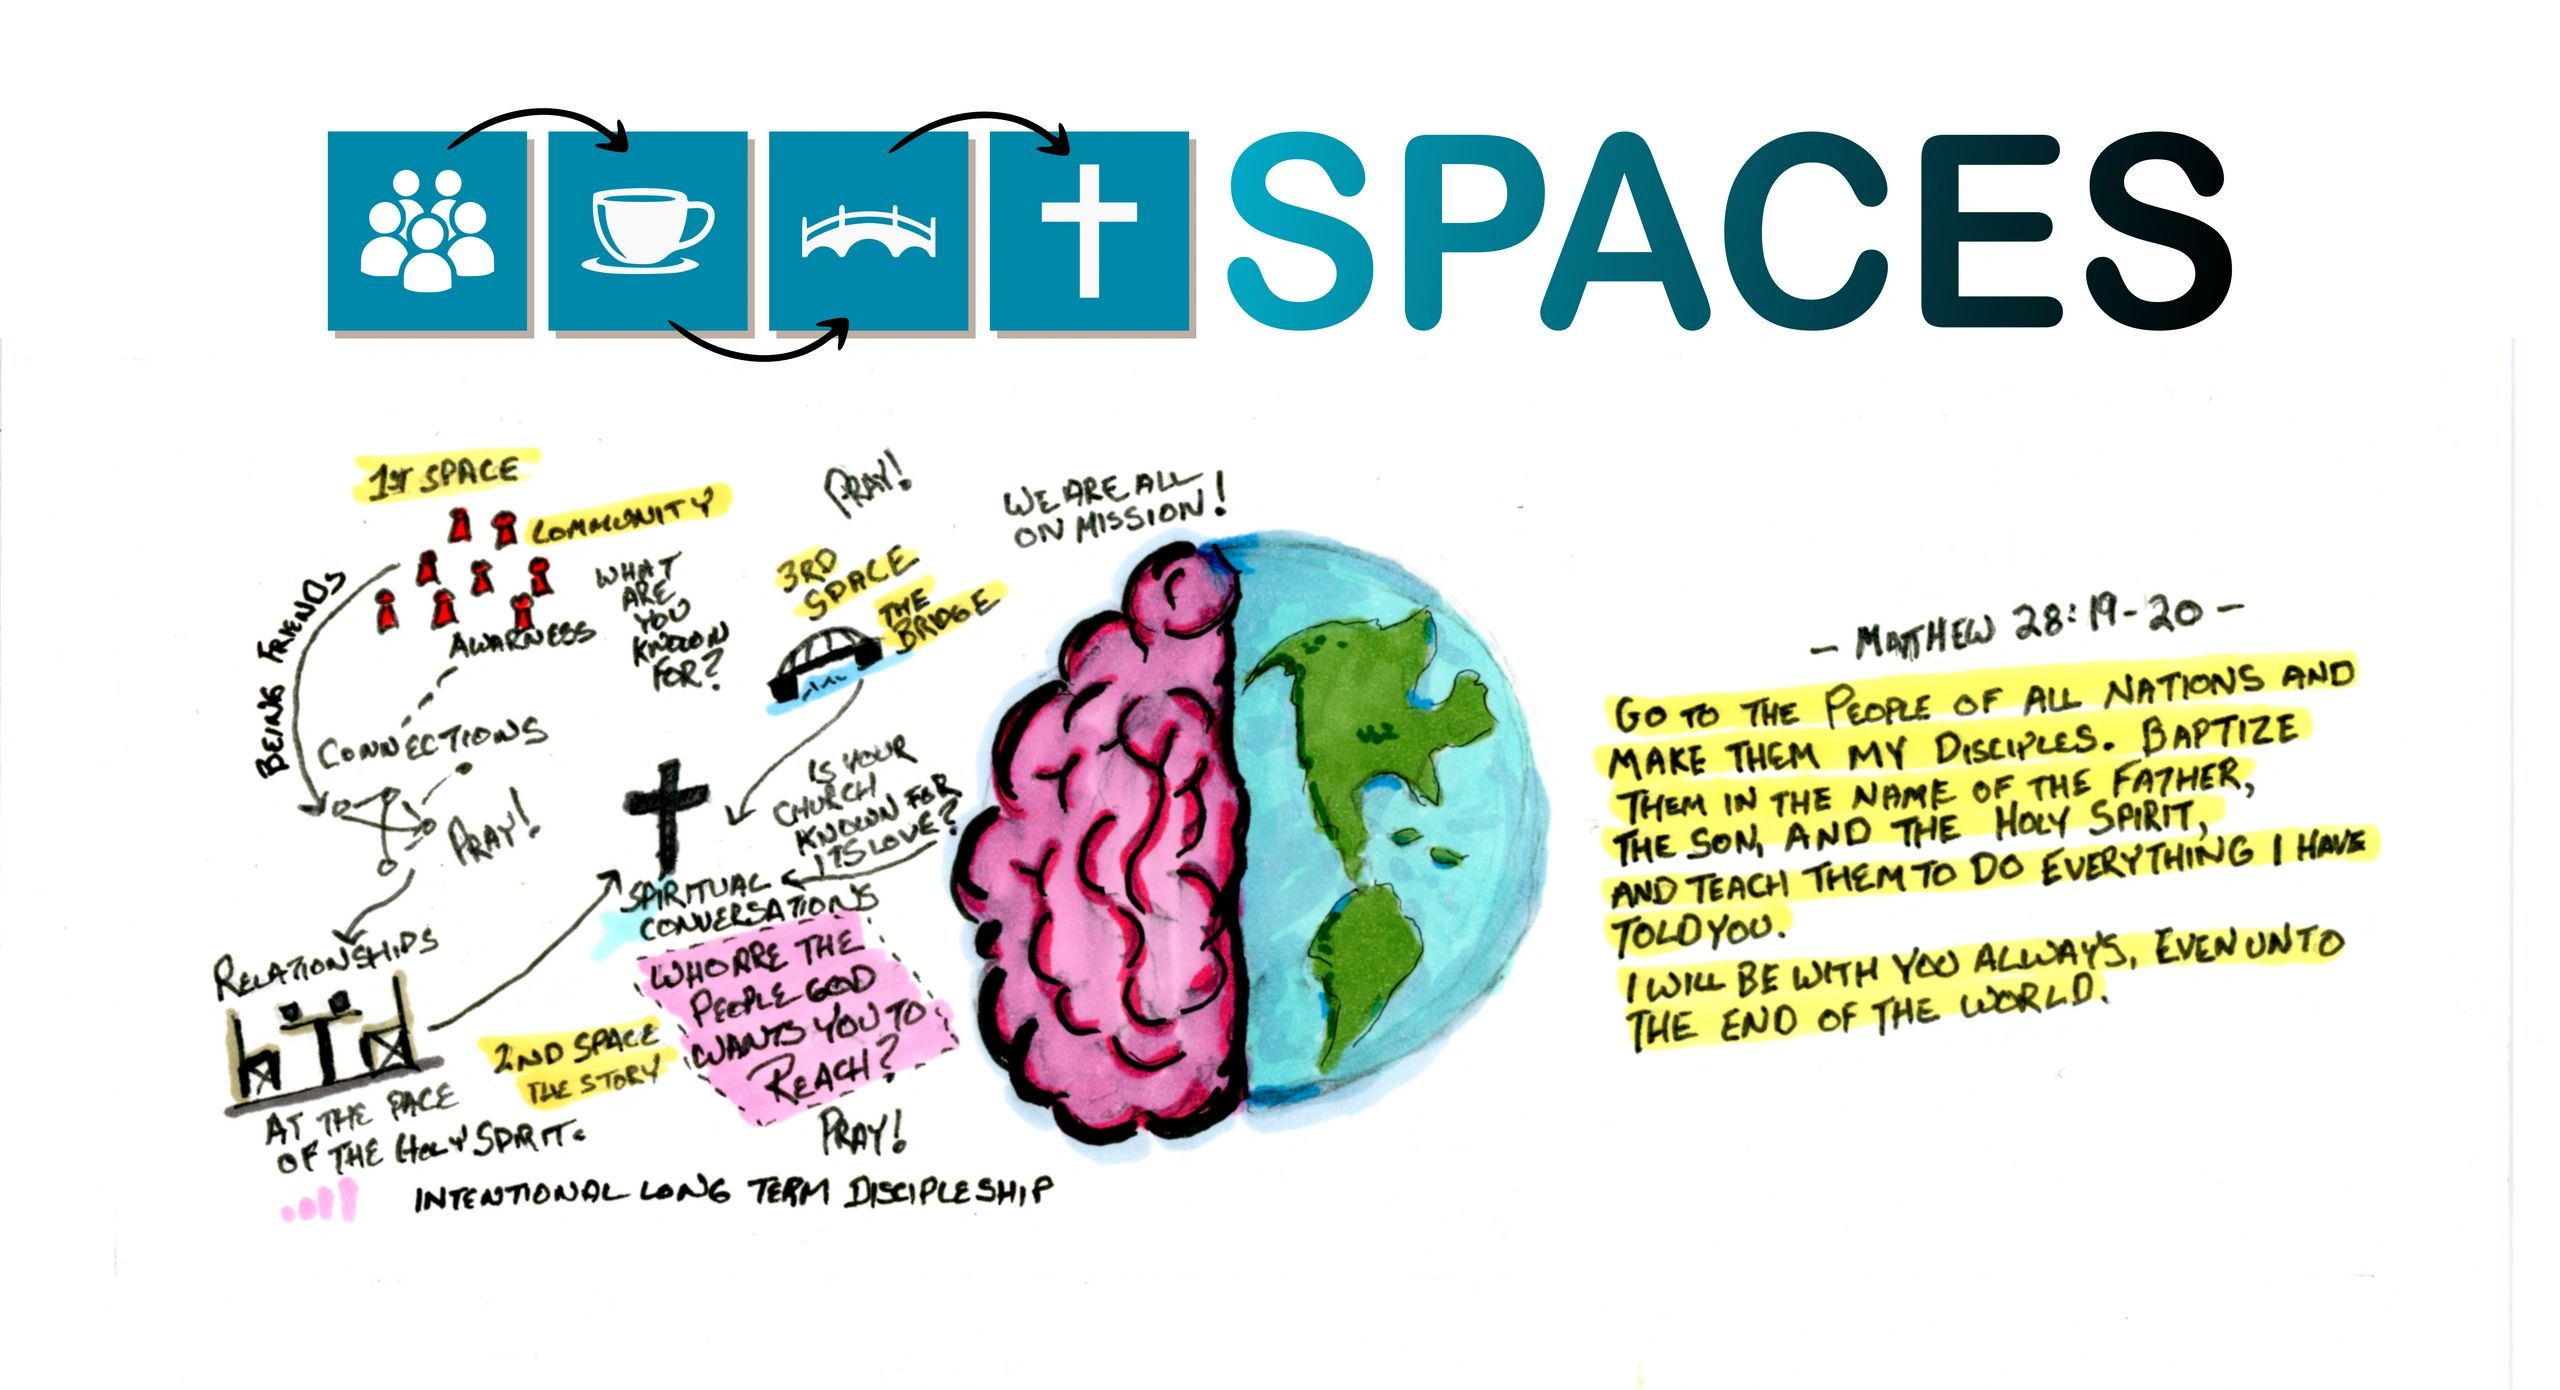 SPACES
1ST SPACE
COMMUNITY
BEING FRIENDS
AWARNESS
WHAT
ARE
YOU
KNOWN
FOR?
CONNECTIONS
PRAY!
RELATIONSHIPS
AT THE PACE
OF THE HOLY SPIRIT.
2ND SPACE
THE STORY
PRAY!
3RD
SPACE
THE
BRIDGE
IS YOUR
CHURCH
KNOWN FOR
ITS LOVE?
SPIRITUAL
CONVERSATIONS
WHO ARE THE
PEOPLE GOD
WANTS YOU TO
REACH?
PRAY!
INTENTIONAL LONG TERM DISCIPLESHIP
WE ARE ALL
ON MISSION!
- MATTHEW 28:19-20 -
GO TO THE PEOPLE OF ALL NATIONS AND
MAKE THEM MY DISCIPLES. BAPTIZE
THEM IN THE NAME OF THE FATHER,
THE SON, AND THE HOLY SPIRIT,
AND TEACH THEM TO DO EVERYTHING I HAVE
TOLD YOU.
I WILL BE WITH YOU ALLWAYS, EVEN UNTO
THE END OF THE WORLD.